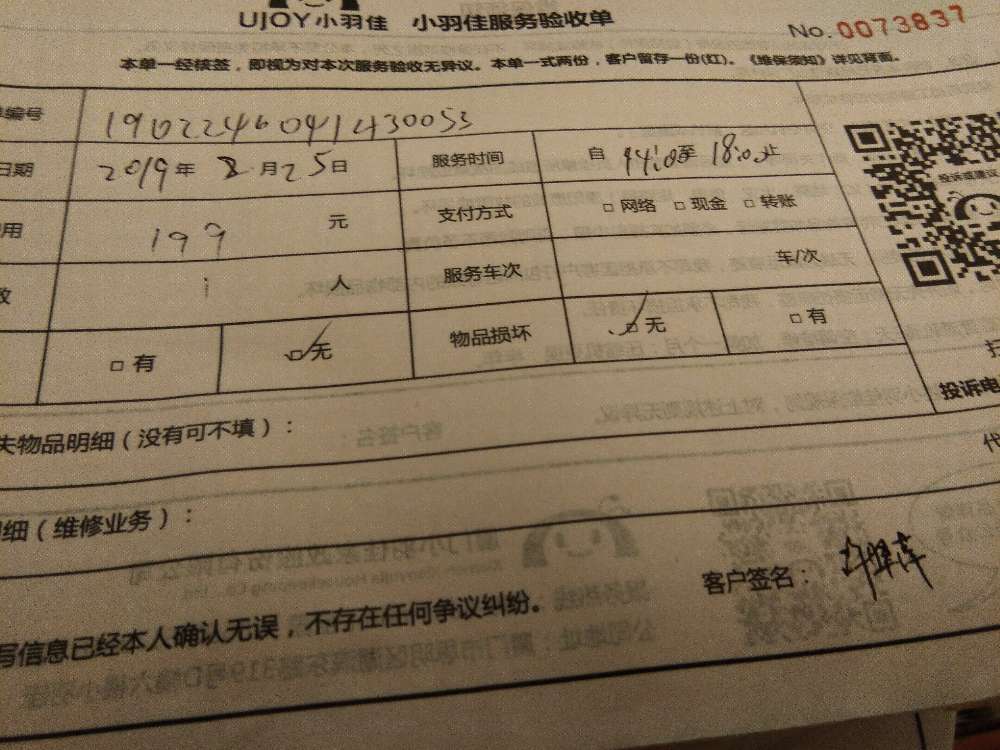 UJOY小羽佳 小羽佳服务验收单
No. 0073837
本单一经核签，即视为对本次服务验收无异议。本单一式两份，客户留存一份(红)。《维保须知》详见背面。
单编号 1902246041430053
日期 2019年8月25日 服务时间 自14:00至18:00止
用 199 元 支付方式 □网络 □现金 □转账
数 1 人 服务车次 车/次
□有 □无 物品损坏 □无 □有
投诉或建议
投诉电
失物品明细（没有可不填）：
代
细（维修业务）：
客户签名：
写信息已经本人确认无误，不存在任何争议纠纷。